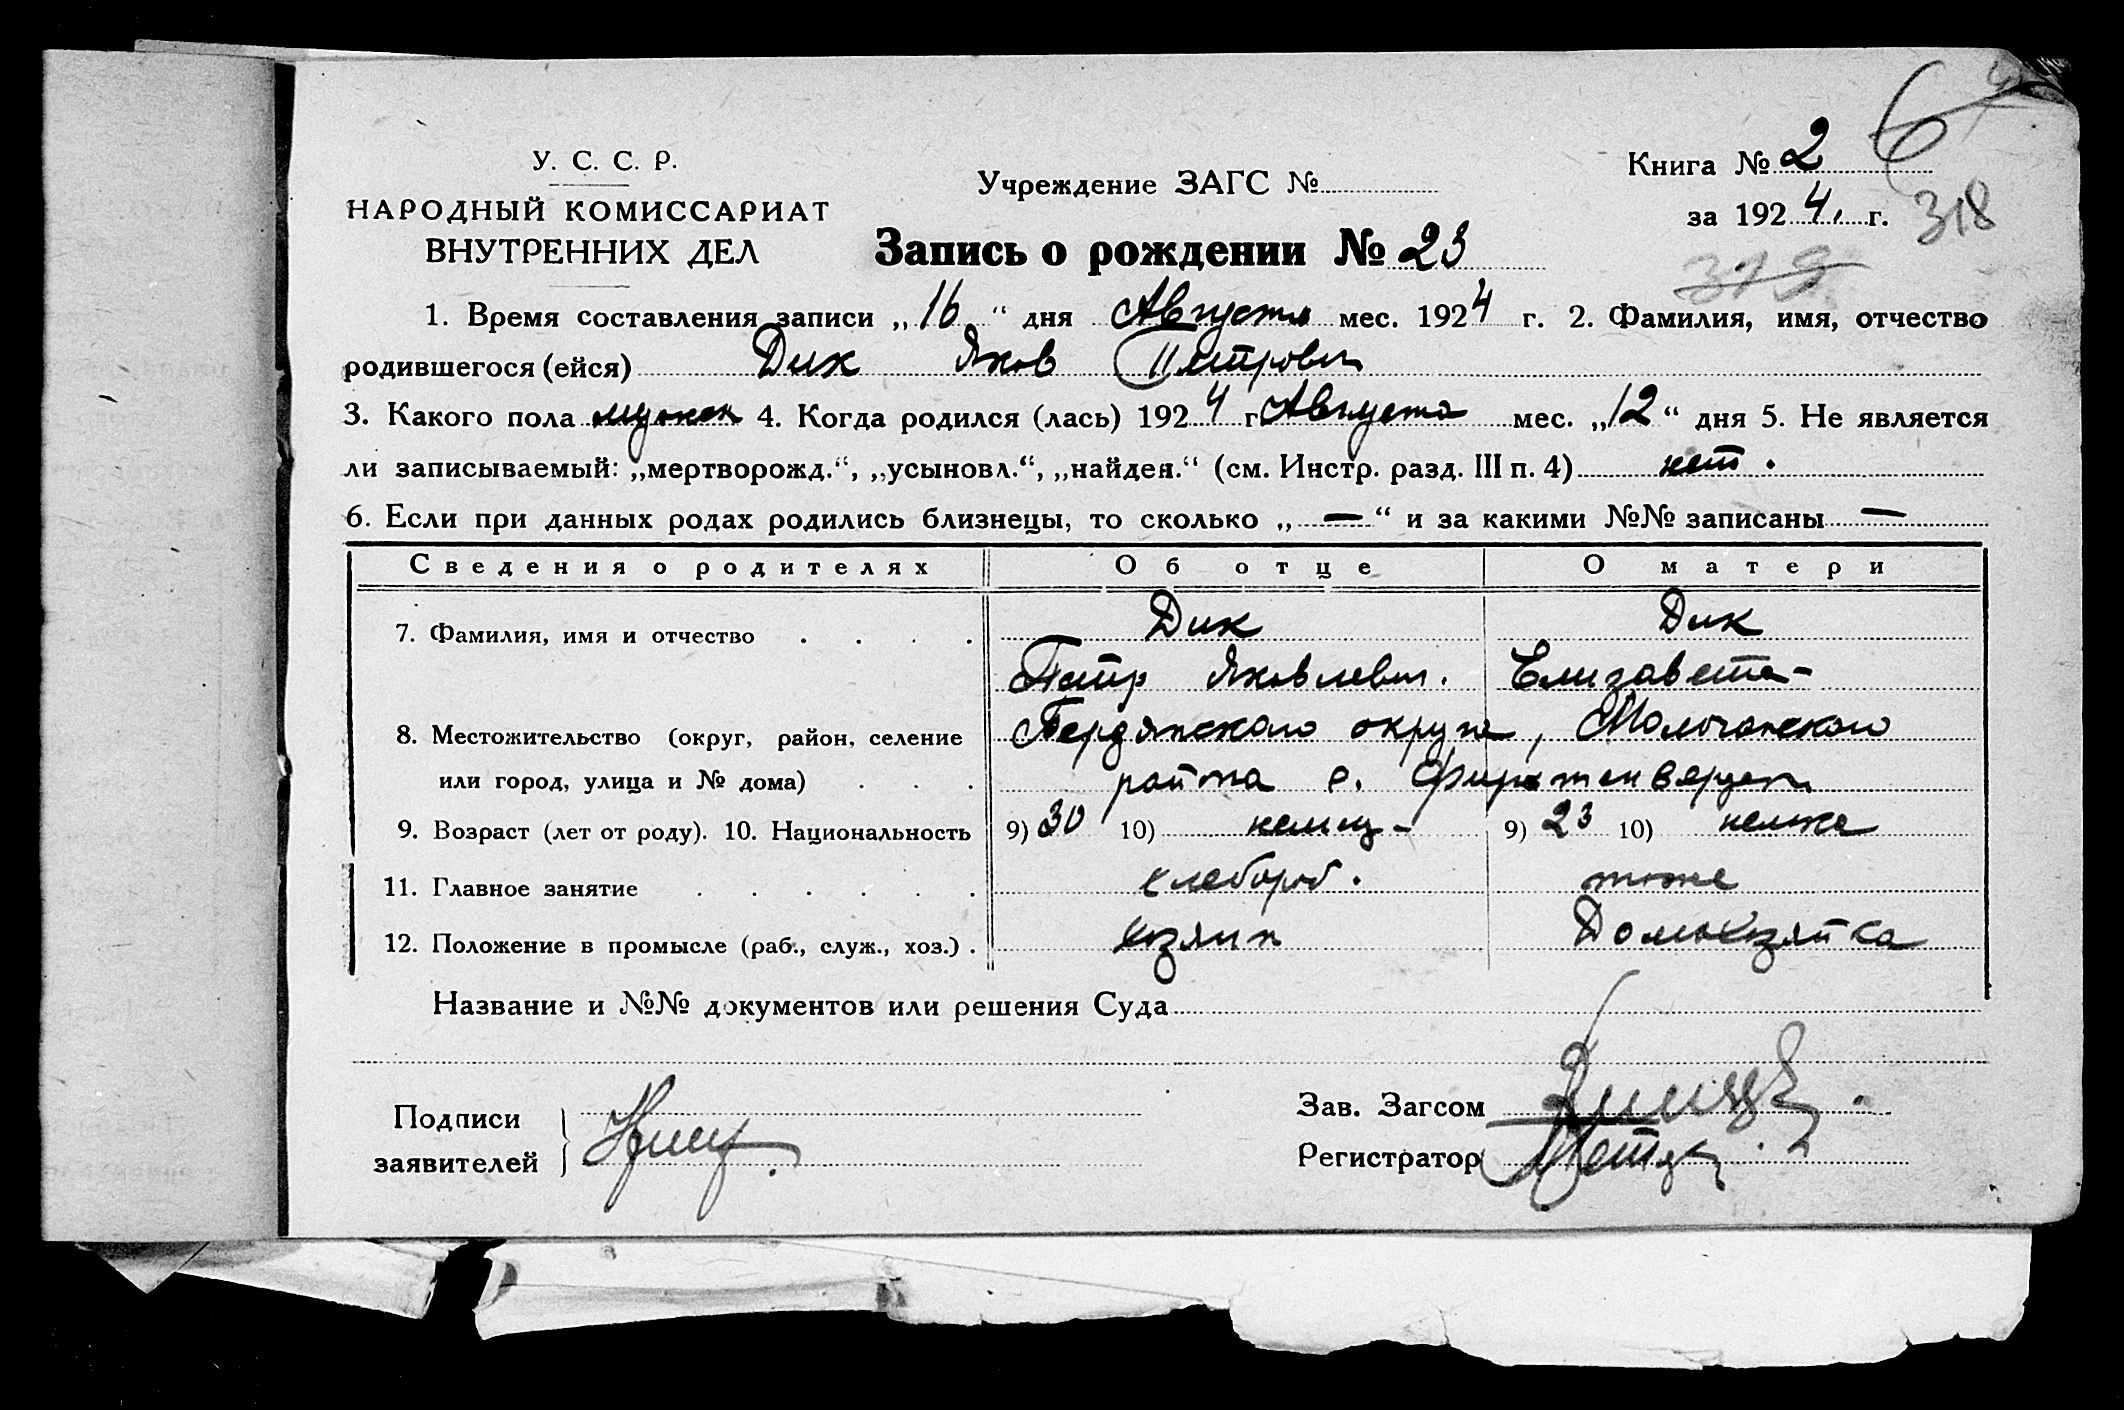 У. С. С. Р.
НАРОДНЫЙ КОМИССАРИАТ
ВНУТРЕННИХ ДЕЛ
Учреждение ЗАГС №
Книга № 2
6
за 1924 г.
318
319
Запись о рождении № 23
1. Время составления записи „16“ дня Августа мес. 1924 г. 2. Фамилия, имя, отчество
родившегося (ейся) Дик Яков Петрович
3. Какого пола мужск 4. Когда родился (лась) 1924 г. Августа мес. „12“ дня 5. Не является
ли записываемый: „мертворожд.“, „усыновл.“, „найден.“ (см. Инстр. разд. III п. 4) нет.
6. Если при данных родах родились близнецы, то сколько „—“ и за какими №№ записаны —
Сведения о родителях Об отце О матери
7. Фамилия, имя и отчество Дик Дик
Петр Яковлевич. Елизавета-
8. Местожительство (округ, район, селение Бердянского округа, Молочанского
или город, улица и № дома) района с. Фирштенвердер
9. Возраст (лет от роду). 10. Национальность 9) 30 10) немец- 9) 23 10) немка
11. Главное занятие хлебороб. тоже
12. Положение в промысле (раб., служ., хоз.) хозяин Домохозяйка
Название и №№ документов или решения Суда
Подписи
заявителей
Зав. Загсом
Регистратор